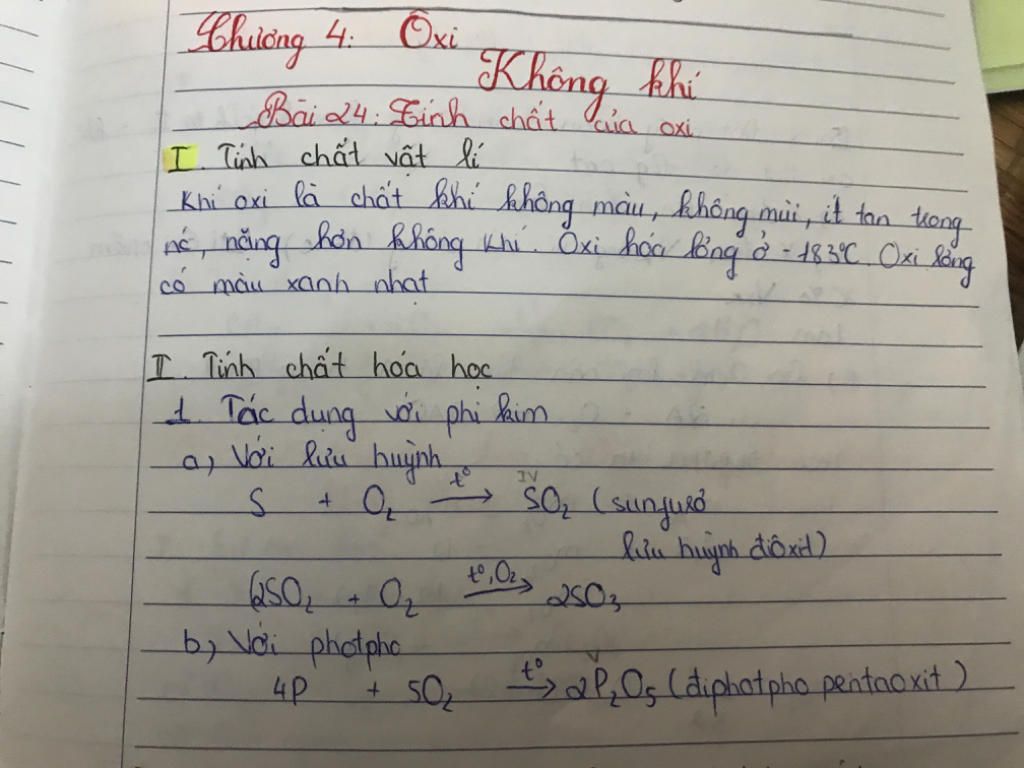 Chương 4: Oxi
Không khí
Bài 24: Tính chất của oxi
I. Tính chất vật lí
Khí oxi là chất khí không màu, không mùi, ít tan trong
nó, nặng hơn không khí. Oxi hóa lỏng ở -183°C. Oxi lỏng
có màu xanh nhạt
II. Tính chất hóa học
1. Tác dụng với phi kim
a, Với lưu huỳnh
S + O₂ —t°→ SO₂ (sunfurơ
IV
lưu huỳnh điôxit)
(2SO₂ + O₂ —t°, O₂→ 2SO₃
b, Với photpho
4P + 5O₂ —t°→ 2P₂O₅ (điphotpho pentaoxit)
V